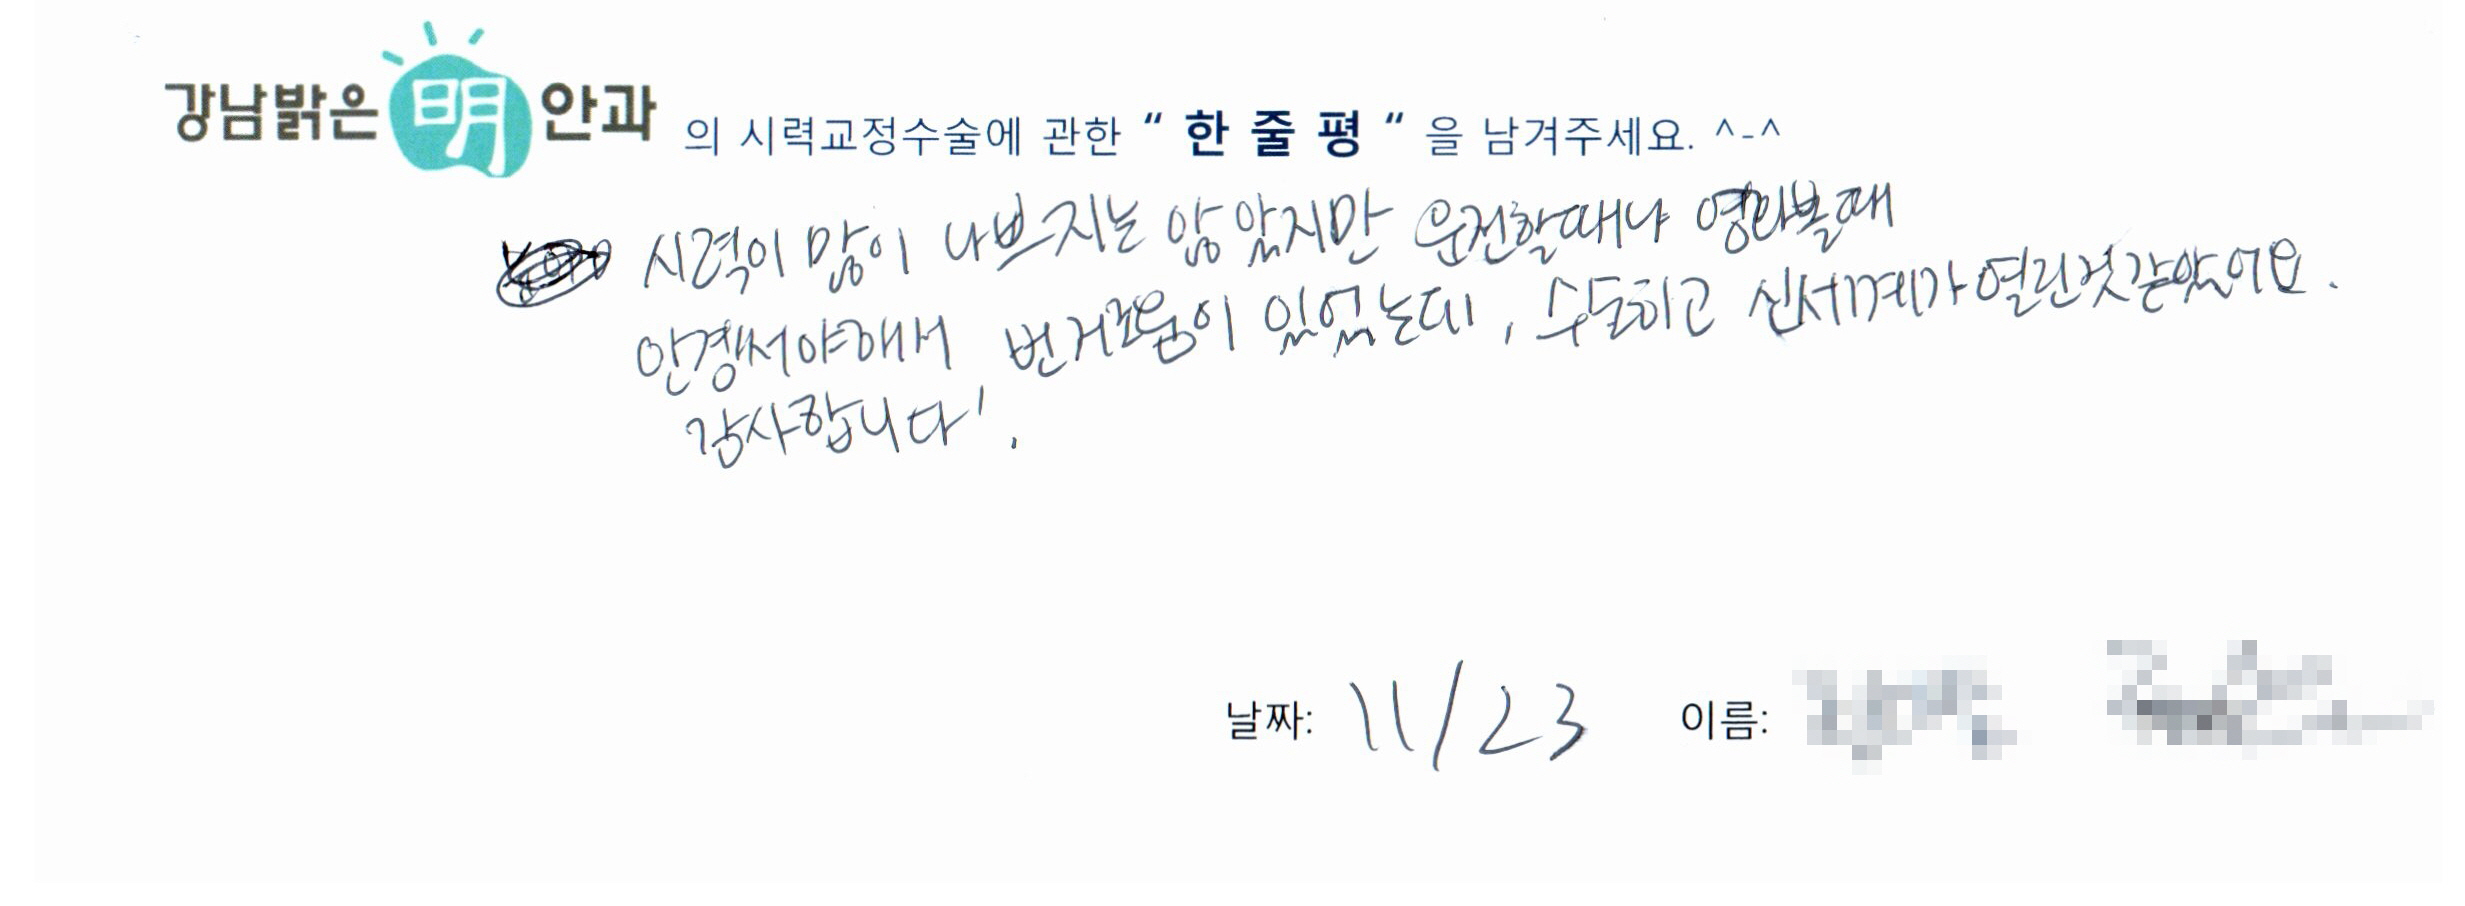 강남밝은明안과 의 시력교정수술에 관한 “ 한 줄 평 “ 을 남겨주세요. ^-^
시력이 많이 나쁘지는 않았지만 운전할때나 영화볼때
안경써야해서 번거로움이 있었는데, 수술하고 신세계가 열린것같았어요.
감사합니다!
날짜: 11/23 이름: